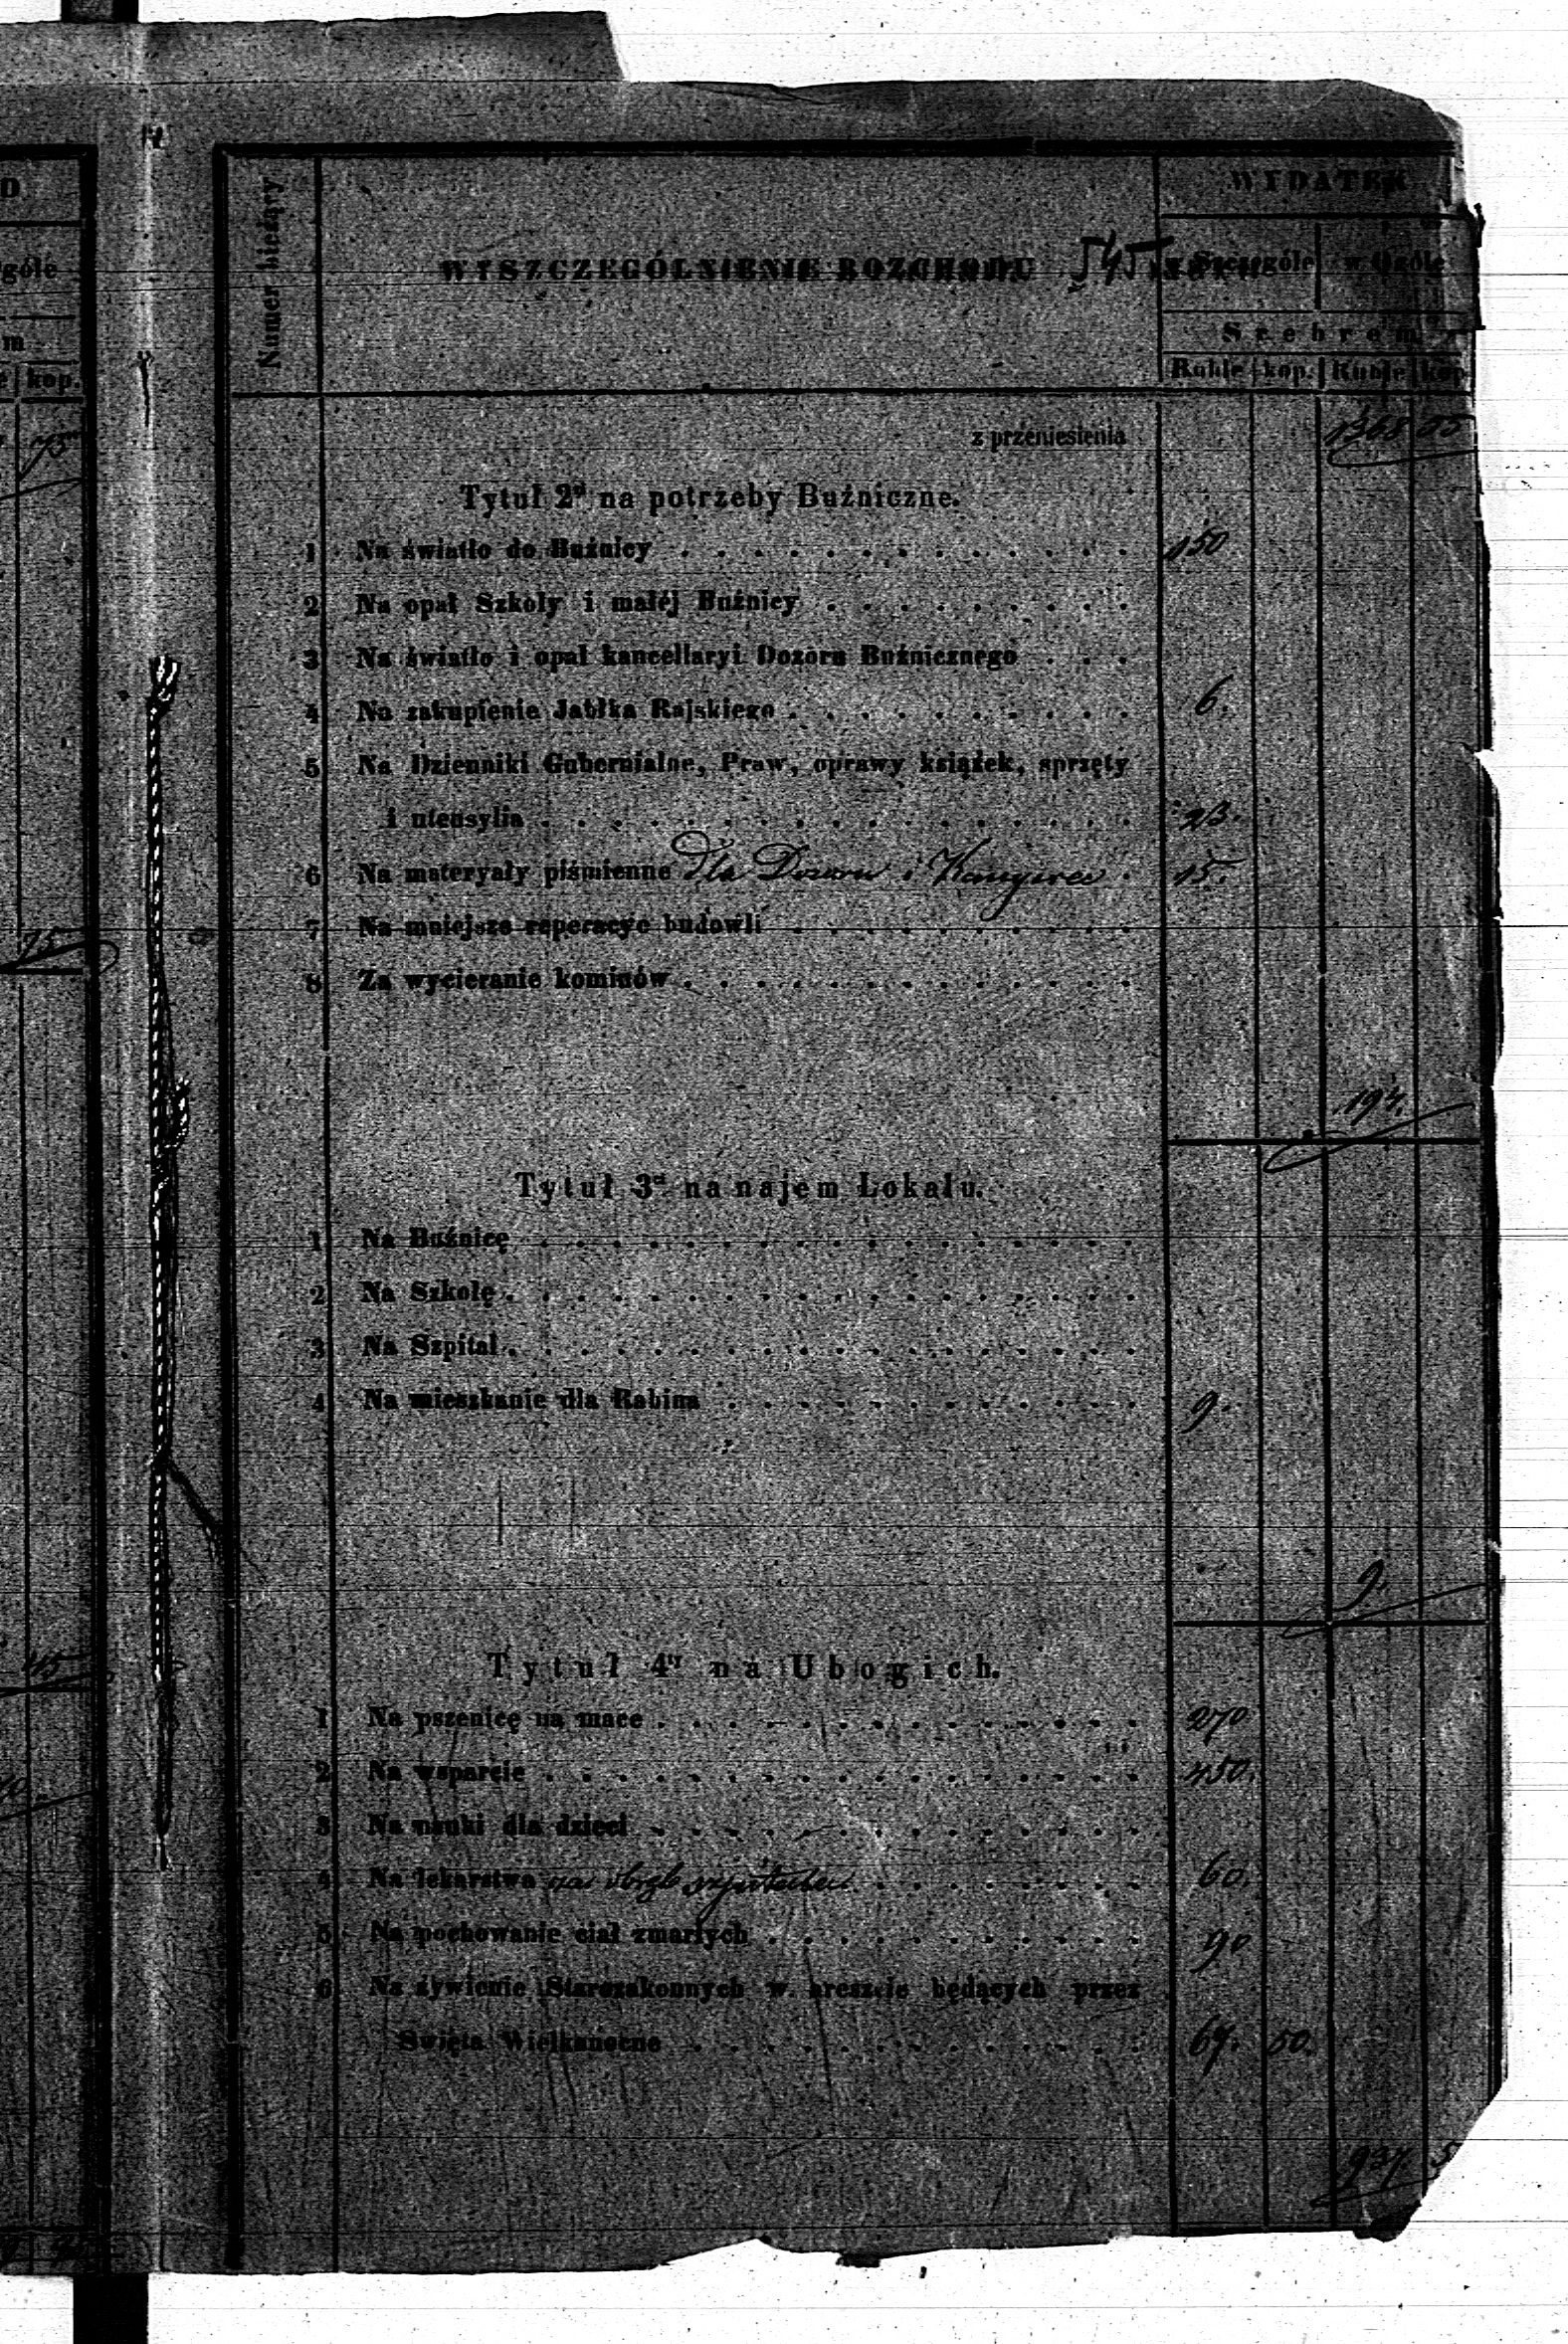 D
WYDATEK
Numer bieżący
WYSZCZEGÓLNIENIE ROZCHODU 545
w Szczególe w Ogóle
góle
Srebrem
m
Ruble kop. Ruble kop.
kop.
z przeniesienia 1368 55
75
Tytuł 2ci na potrzeby Buźniczne.
1 Na światło do Buźnicy 150
2 Na opał Szkoły i małéj Buźnicy
3 Na światło i opał kancellaryi Dozoru Buźnicznego
4 Na zakupienie Jabłka Rajskiego 6.
5 Na Dzienniki Gubernialne, Praw, oprawy książek, sprzęty
i utensylia 23.
6 Na materyały piśmienne dla Dozoru i 15.
7 Na mniejsze reperacye budowli
75
8 Za wycieranie kominów
194.
Tytuł 3ci na najem Lokalu.
1 Na Buźnicę
2 Na Szkołę
3 Na Szpital
4 Na mieszkanie dla Rabina 9.
9.
Tytuł 4ty na Ubogich.
1 Na pszenicę na mace 270
2 Na wsparcie 450.
3 Na nauki dla dzieci
4 Na lekarstwa 60.
5 Na pochowanie ciał zmarłych 90
6 Na żywienie Starozakonnych w areszcie będących przez
Święta Wielkanocne 67. 50.
937 5